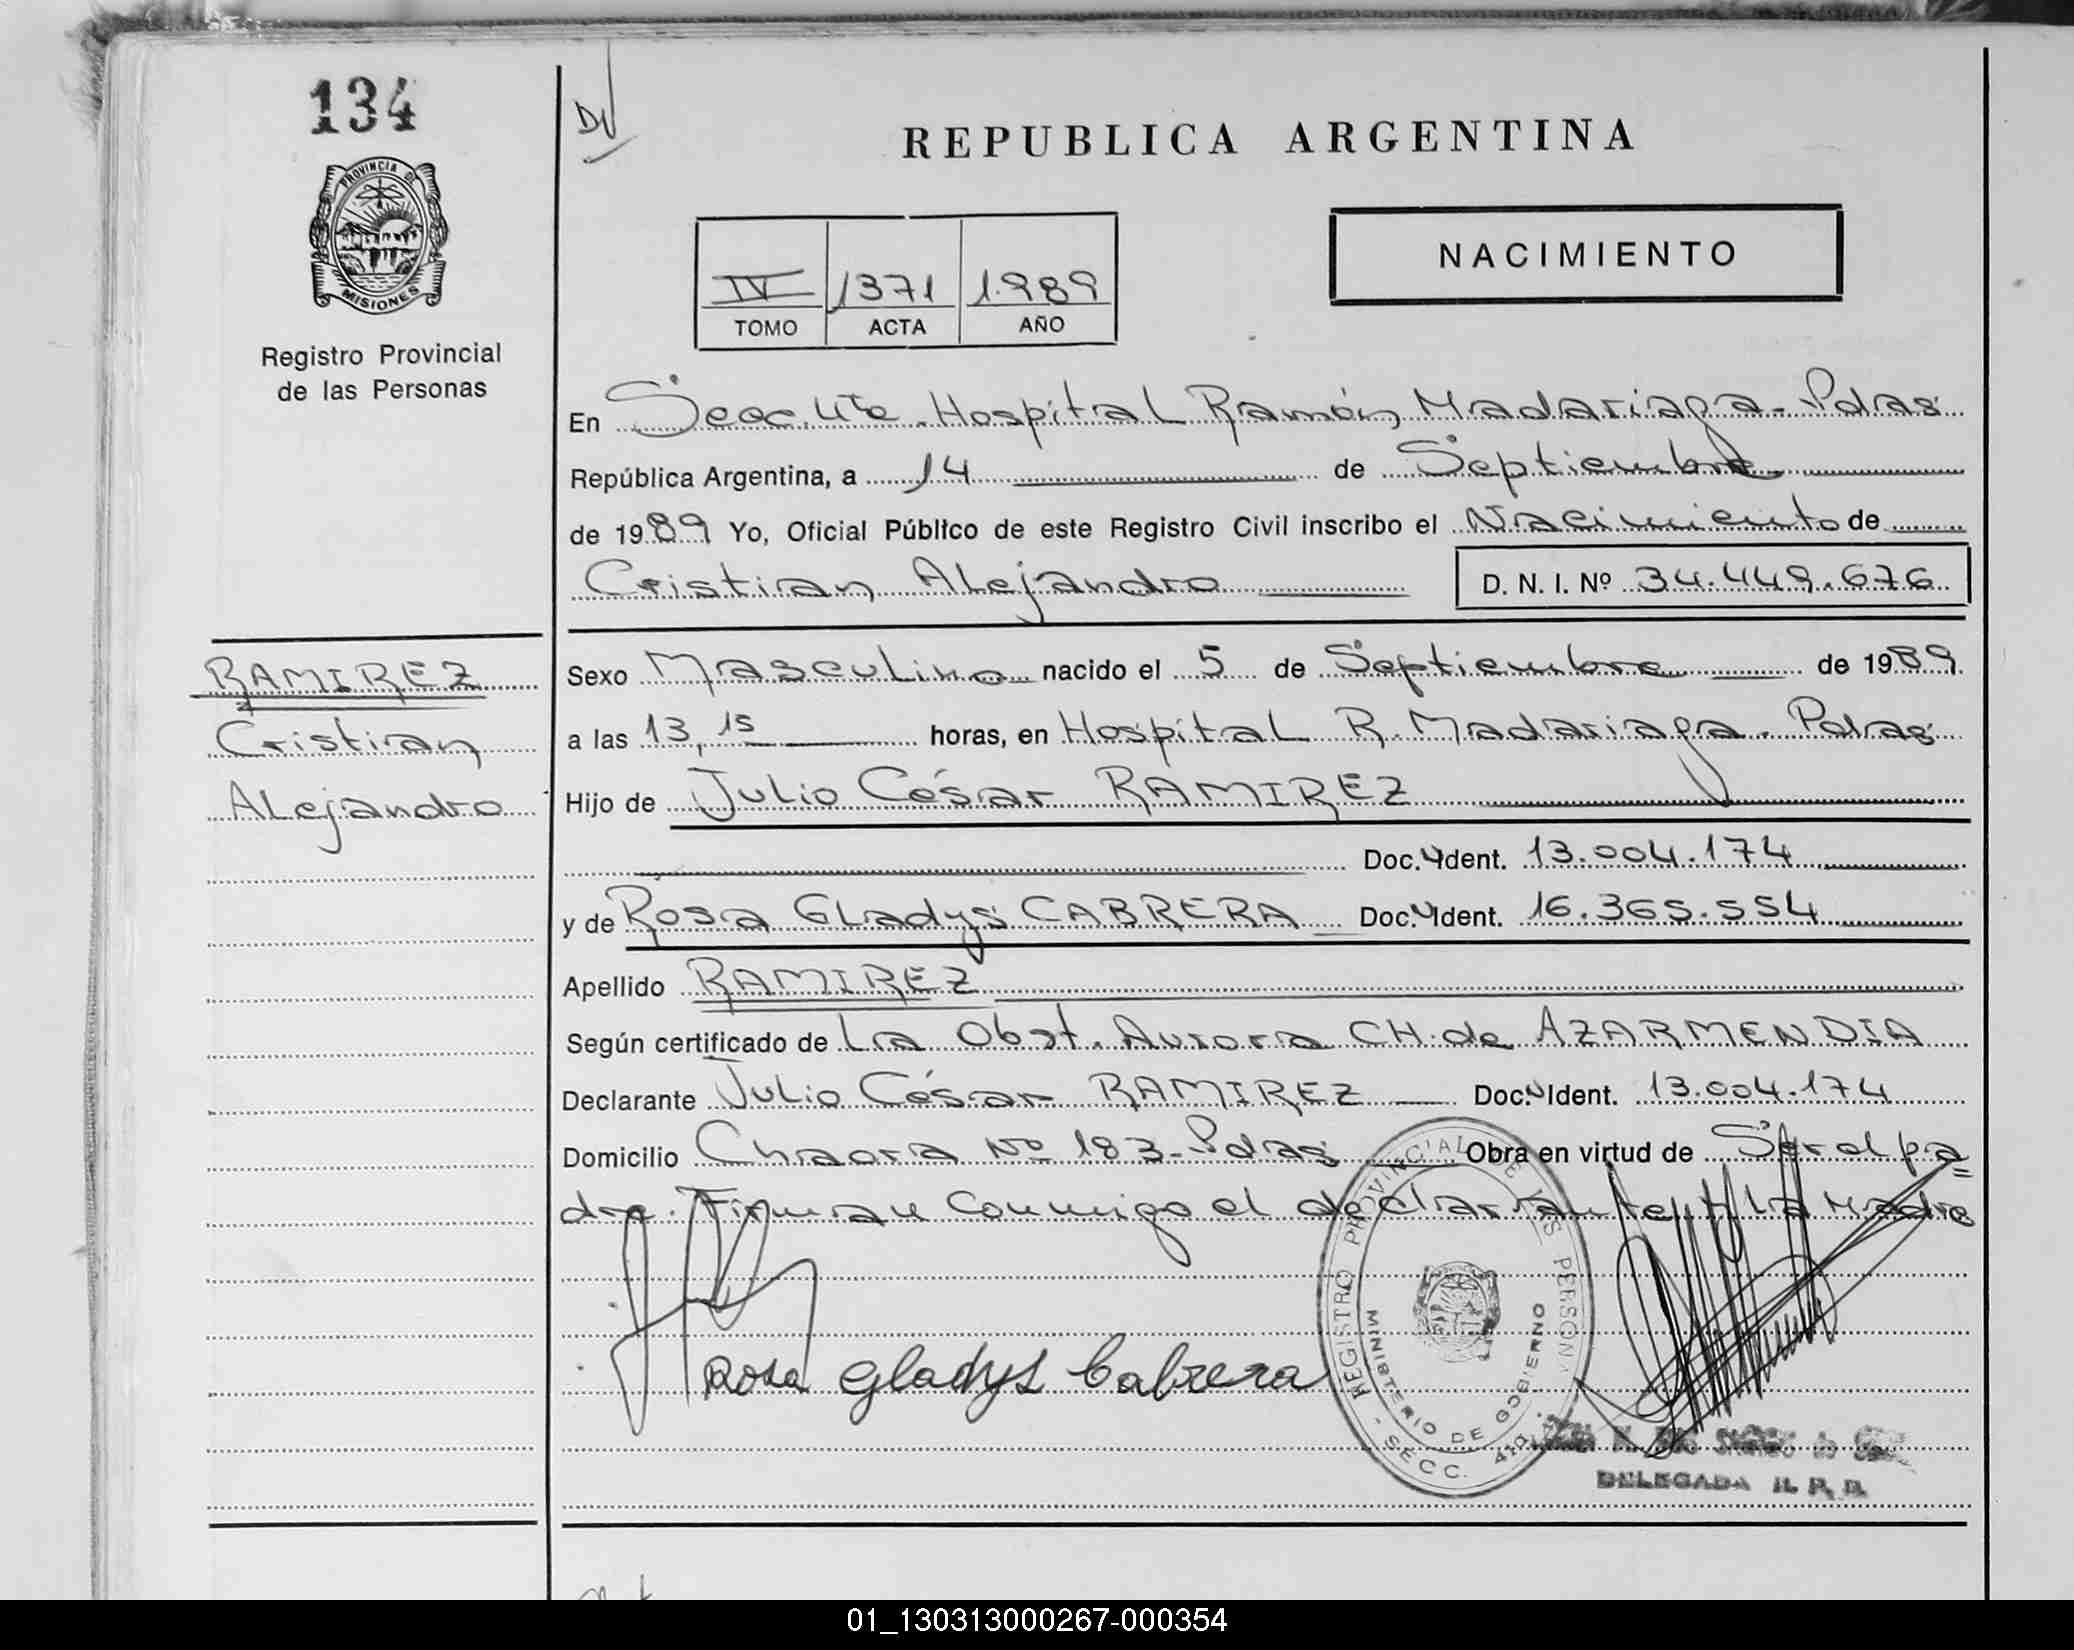 134
PROVINCIA DE
MISIONES
Registro Provincial
de las Personas
REPUBLICA ARGENTINA
NACIMIENTO
IV 1371 1.989
TOMO ACTA AÑO
En Secc. 4ta. Hospital Ramón Madariaga - Pdas
República Argentina, a 14 de Septiembre
de 1989 Yo, Oficial Público de este Registro Civil inscribo el Nacimiento de
Cristian Alejandro D. N. I. Nº 34.449.676
RAMIREZ
Cristian
Alejandro
Sexo Masculino nacido el 5 de Septiembre de 1989
a las 13,15 horas, en Hospital R. Madariaga - Pdas
Hijo de Julio César RAMIREZ
Doc. Ident. 13.004.174
y de Rosa Gladys CABRERA Doc. Ident. 16.365.554
Apellido RAMIREZ
Según certificado de La Obst. Aurora CH. de AZARMENDIA
Declarante Julio César RAMIREZ Doc. Ident. 13.004.174
Domicilio Chacra Nº 183 - Pdas Obra en virtud de Ser el pa=
dre. Firman Conmigo el declarante y la Madre
Rosa Gladys Cabrera
REGISTRO PROVINCIAL DE LAS PERSONAS
MINISTERIO DE GOBIERNO
SECC. 4ta.
DELEGADA R. P. P.
01_130313000267-000354